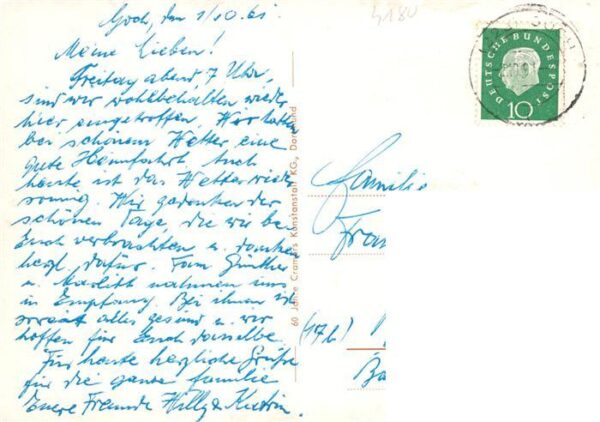 Goch, den 1/10.61.
Meine Lieben!
Freitag abend, 7 Uhr,
sind wir wohlbehalten wieder
hier eingetroffen. Wir hatten
bei schönem Wetter eine
gute Heimfahrt. Auch
heute ist das Wetter wieder
sonnig. Wir gedenken der
schönen Tage, die wir bei
Euch verbrachten u. danken
herzl. dafür. Fam. Günther
u. nahmen uns
in Empfang. Bei ihnen ist
soweit alles gesund u. wir
hoffen für Euch dasselbe.
Für heute herzliche Grüße
für die ganze Familie
Eure Freunde Willy & Katrin.
4180
DEUTSCHE BUNDESPOST
10
60 Jahre Cramers Kunstanstalt KG., Dortmund
Familie
Fran
(17b)
Ba